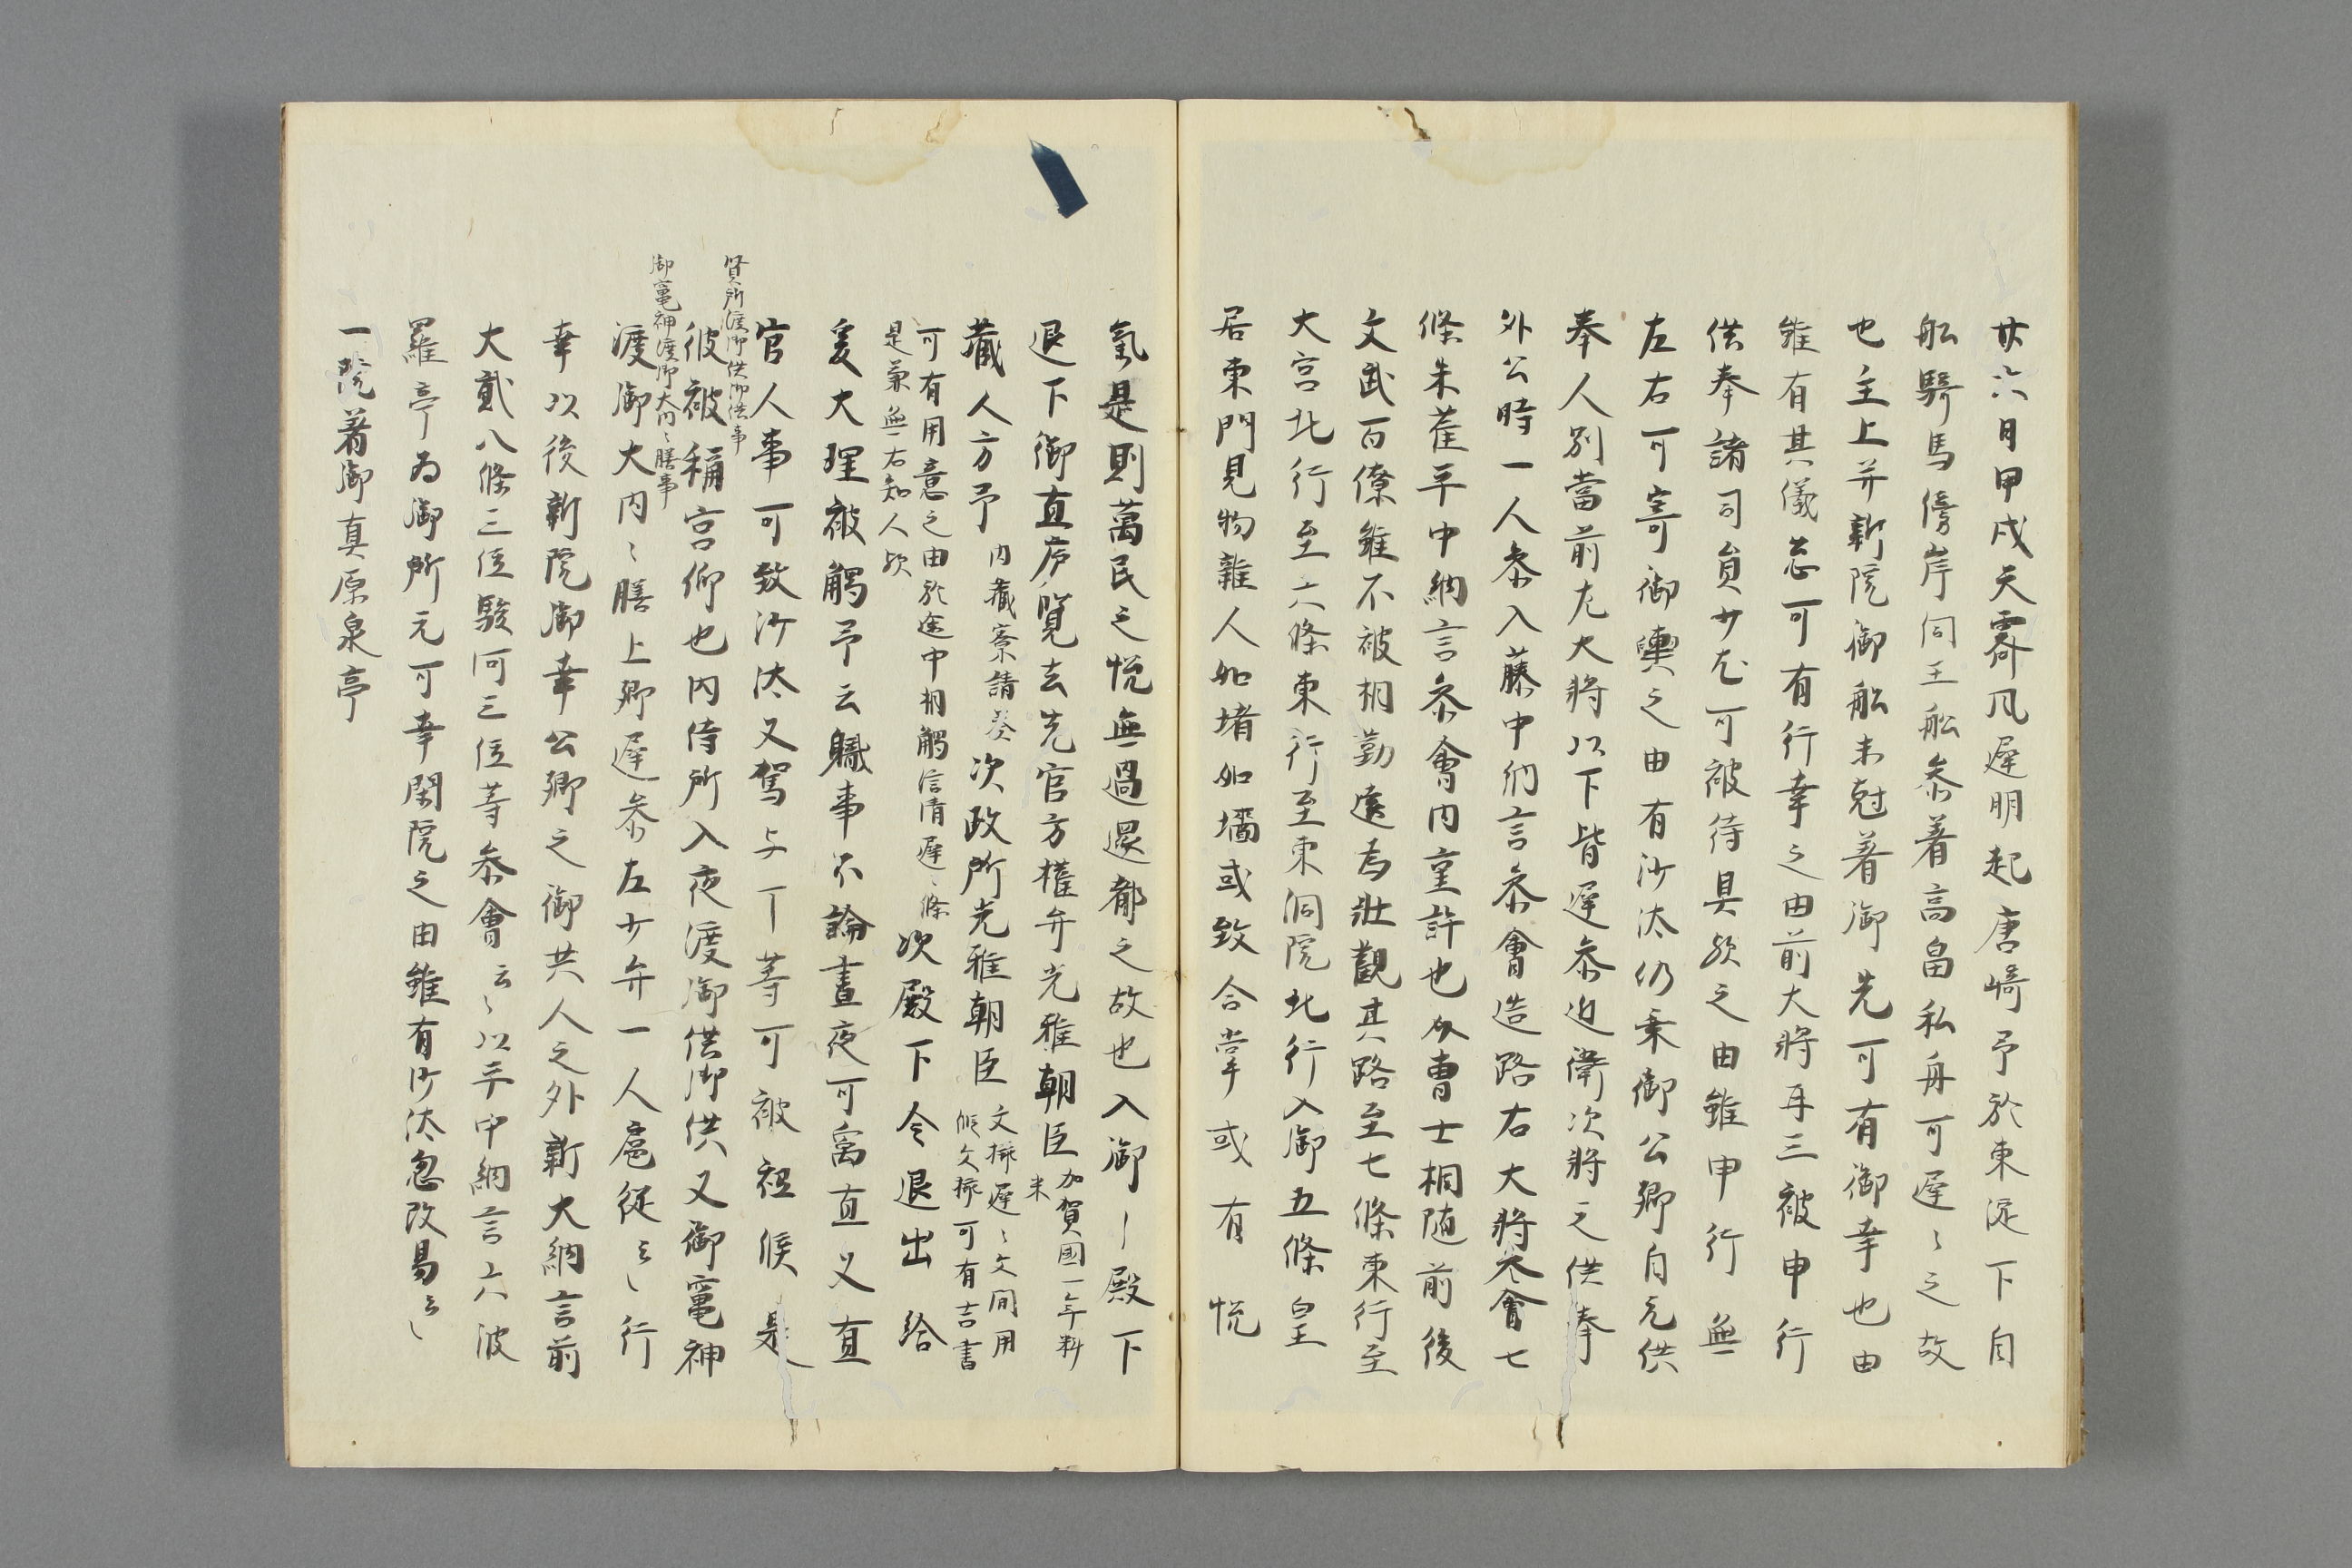 廿六日甲戌天霽風遅明起唐崎予於東淀下自
舩騎馬傍岸伺王舩参着高畠私舟可遅〻之故
也主上并新院御舩未尅着御先可有御幸也由
雖有其儀忩可有行幸之由前大將再三被申行
供奉諸司員少尤可被待具歟之由雖申行無
左右可寄御輿之由有沙汰仍乗御公卿自元供
奉人別當前左大將以下皆遅参近衛次將之供奉
外公時一人参入藤中納言参會造路右大將参會七
條朱雀平中納言参會内裏許也武士相随前後
文武百僚雖不被相勤還為壯觀其路至七條東行至
大宮北行至六條東行至東洞院北行入御五條皇
居東門見物雜人如堵如墻或致合掌或有悦
氣是則萬民之悦無過還都之故也入御〡殿下
退下御直廬覧吉先官方權弁光雅朝臣加賀國一年料
米
藏人方予内藏寮請奏次政所光雅朝臣文挿遅〻文間用
假文挿可有吉書
可有用意之由於途中相觸信清遅〻條次殿下令退出給
是兼無右知人歟
爰大理被觸予云軄事不論晝夜可寓直又直
官人事可致沙汰又駕与丁等可被祗候是
彼被稱宮仰也内侍所入夜渡御供御供又御竈神
賢所渡御供御供事
渡御大内〻膳上卿遅参左少弁一人扈從云〻行
御竈神渡御大内〻膳事
幸以後新院御幸公卿之御共人之外新大納言前
大貳八條三位駿河三位等参會云〻以平中納言六波
羅亭為御所元可幸閑院之由雖有沙汰忽改易云〻
一院着御真原泉亭